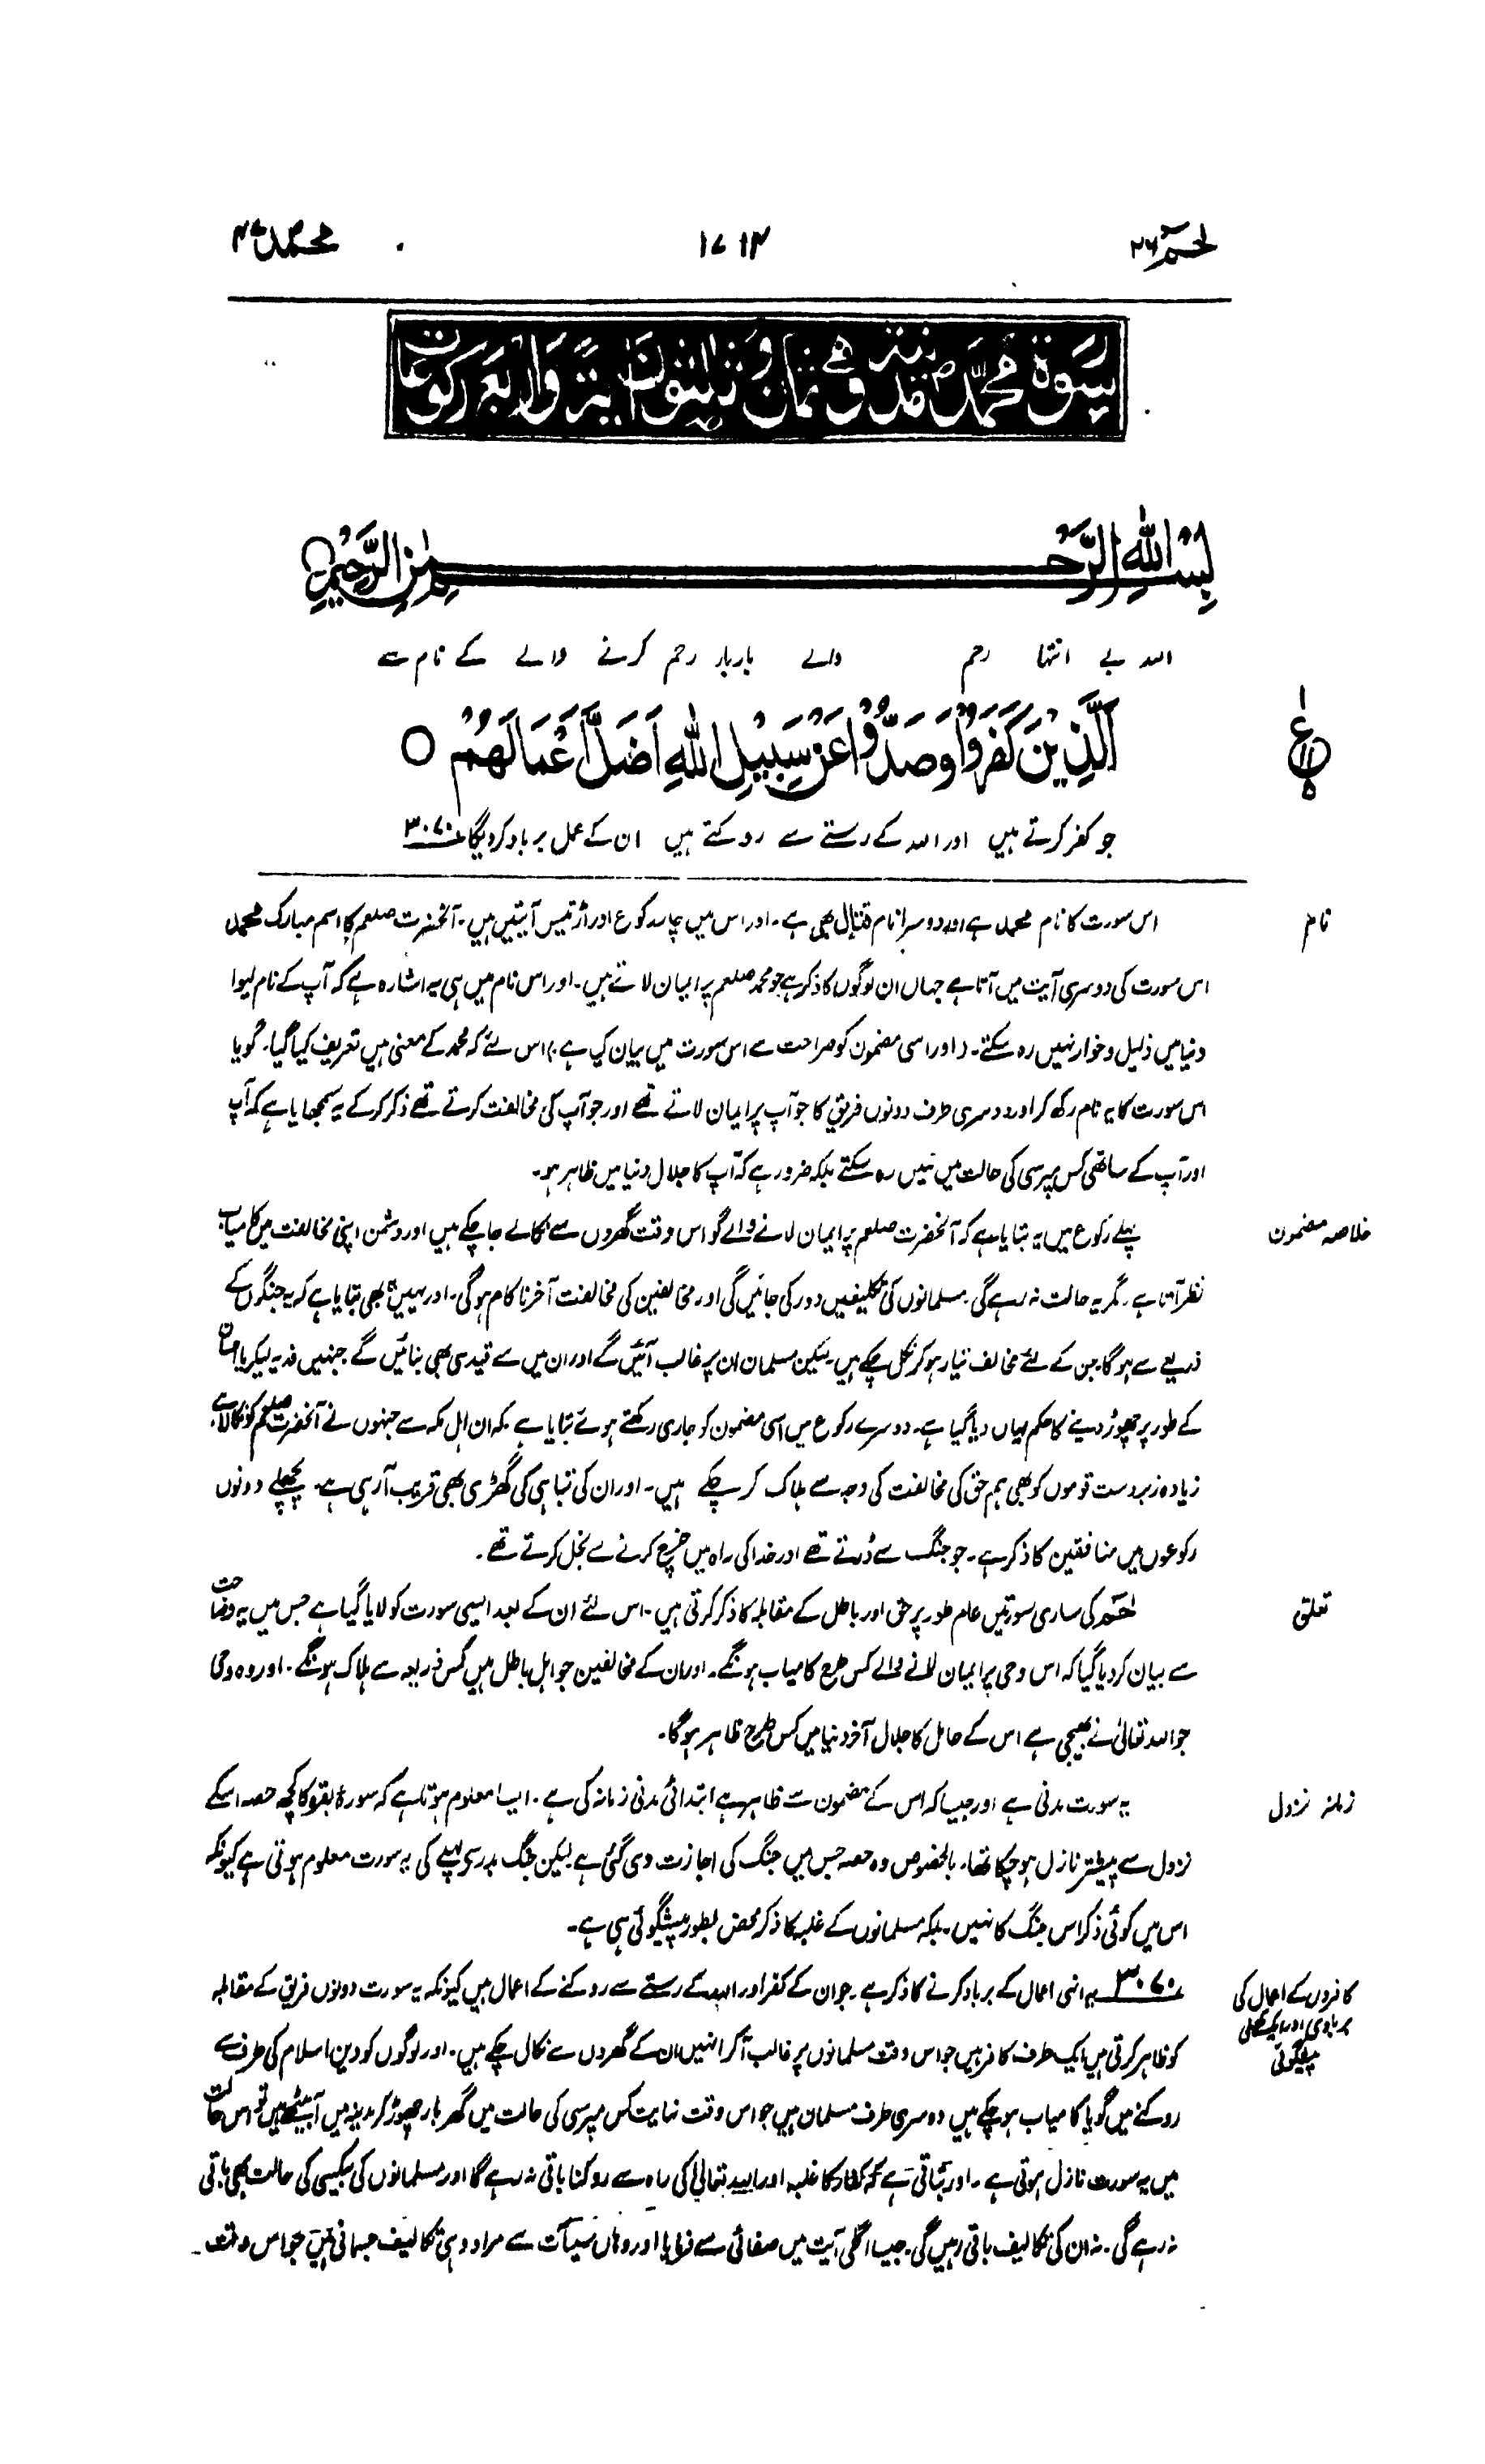 حٰمٓ ۲۶
۱۷۱۳
محمد ۴۷
سورة محمد مدنية وهي ثمان وثلثون اية واربع ركوعات
بِسْمِ اللهِ الرَّحْمٰنِ الرَّحِيْمِ ○
اللہ بے انتہا رحم والے باربار رحم کرنے والے کے نام سے
اَلَّذِيْنَ كَفَرُوْا وَصَدُّوْا عَنْ سَبِيْلِ اللهِ اَضَلَّ اَعْمَالَهُمْ ○
جو کفر کرتے ہیں اور اللہ کے رستے سے روکتے ہیں ان کے عمل برباد کردیگا ۳۰۷۰
نام
اس سورت کا نام محمد ہے اور دوسرا نام قتال بھی ہے۔ اور اس میں چار رکوع اور اڑتیس آیتیں ہیں۔ آنحضرت صلعم کا اسم مبارک محمد
اس سورت کی دوسری آیت میں آتا ہے جہاں ان لوگوں کا ذکر ہے جو محمد صلعم پر ایمان لاتے ہیں۔ اور اس نام میں ہی یہ اشارہ ہے کہ آپ کے نام لیوا
دنیا میں ذلیل و خوار نہیں رہ سکتے۔ (اور اسی مضمون کو صراحت سے اس سورت میں بیان کیا ہے) اس لئے کہ محمد کے معنی ہیں تعریف کیا گیا۔ گویا
اس سورت کا یہ نام رکھ کر اور دوسری طرف دونوں فریق کا جو آپ پر ایمان لاتے تھے اور جو آپ کی مخالفت کرتے تھے ذکر کرکے یہ سمجھایا ہے کہ آپ
اور آپ کے ساتھی کس مپرسی کی حالت میں نہیں رہ سکتے بلکہ ضرور ہے کہ آپ کا جلال دنیا میں ظاہر ہو۔
خلاصہ مضمون
پہلے رکوع میں یہ بتایا ہے کہ آنحضرت صلعم پر ایمان لانے والے گو اس وقت گھروں سے نکالے جا چکے ہیں اور دشمن اپنی مخالفت میں کامیاب
نظر آتا ہے۔ مگر یہ حالت نہ رہے گی۔ مسلمانوں کی تکلیفیں دور کی جائیں گی اور مخالفین کی مخالفت آخر ناکام ہوگی۔ اور یہیں یہ بھی بتایا ہے کہ یہ جنگوں کے
ذریعے سے ہوگا۔ جن کے لئے مخالف تیار ہو کر نکل چکے ہیں۔ لیکن مسلمان ان پر غالب آئیں گے اور ان میں سے قیدی بھی بنائیں گے جنہیں فدیہ لیکر یا احسان
کے طور پر چھوڑ دینے کا حکم یہاں دیا گیا ہے۔ دوسرے رکوع میں اسی مضمون کو جاری رکھتے ہوئے بتایا ہے کہ ان اہل مکہ سے جنہوں نے آنحضرت صلعم کو نکالا ہے
زیادہ زبردست قوموں کو بھی ہم حق کی مخالفت کی وجہ سے ہلاک کر چکے ہیں۔ اور ان کی تباہی کی گھڑی بھی قریب آرہی ہے۔ پچھلے دونوں
رکوعوں میں منافقین کا ذکر ہے۔ جو جنگ سے ڈرتے تھے اور خدا کی راہ میں خرچ کرنے سے بخل کرتے تھے۔
تعلق
حٰمٓ کی ساری سورتیں عام طور پر حق اور باطل کے مقابلہ کا ذکر کرتی ہیں۔ اس لئے ان کے بعد ایسی سورت کو لایا گیا ہے جس میں یہ وضاحت
سے بیان کر دیا گیا کہ اس وحی پر ایمان لانے والے کس طرح کامیاب ہونگے۔ اور ان کے مخالفین جو اہل باطل ہیں کس ذریعہ سے ہلاک ہونگے۔ اور وہ وحی
جو اللہ تعالیٰ نے بھیجی ہے اس کے حامل کا جلال آخر دنیا میں کس طرح ظاہر ہوگا۔
زمانہ نزول
یہ سورت مدنی ہے اور جیسا کہ اس کے مضمون سے ظاہر ہے ابتدائی مدنی زمانہ کی ہے۔ ایسا معلوم ہوتا ہے کہ سورۂ بقرہ کا کچھ حصہ اسکے
نزول سے پیشتر نازل ہو چکا تھا۔ بالخصوص وہ حصہ جس میں جنگ کی اجازت دی گئی ہے لیکن جنگ بدر سے پہلے کی یہ سورت معلوم ہوتی ہے کیونکہ
اس میں کوئی ذکر اس جنگ کا نہیں۔ بلکہ مسلمانوں کے غلبہ کا ذکر محض بطور پیشگوئی ہی ہے۔
کافروں کے اعمال کی
بربادی اور ایک کھلی
پیشگوئی
۳۰۷۰ یہ انہی اعمال کے برباد کرنے کا ذکر ہے۔ جو ان کے کفر اور اللہ کے رستے سے روکنے کے اعمال ہیں کیونکہ یہ سورت دونوں فریق کے مقابلہ
کو ظاہر کرتی ہے ایک طرف کافر ہیں جو اس وقت مسلمانوں پر غالب آکر انہیں ان کے گھروں سے نکال چکے ہیں۔ اور لوگوں کو دین اسلام کی طرف سے
روکنے میں گویا کامیاب ہو چکے ہیں دوسری طرف مسلمان ہیں جو اس وقت نہایت کس مپرسی کی حالت میں گھر بار چھوڑ کر مدینہ میں آبیٹھے ہیں تو اس حالت
میں یہ سورت نازل ہوتی ہے۔ اور بتاتی ہے کہ کفار کا غلبہ اور اللہ تعالیٰ کی راہ سے روکنا باقی نہ رہے گا اور مسلمانوں کی بیکسی کی حالت بھی باقی
نہ رہے گی۔ نہ ان کی تکالیف باقی رہیں گی۔ جیسا اگلی آیت میں صفائی سے فرمایا اور وہاں سیآت سے مراد وہی تکالیف جسمانی ہیں جو اس وقت